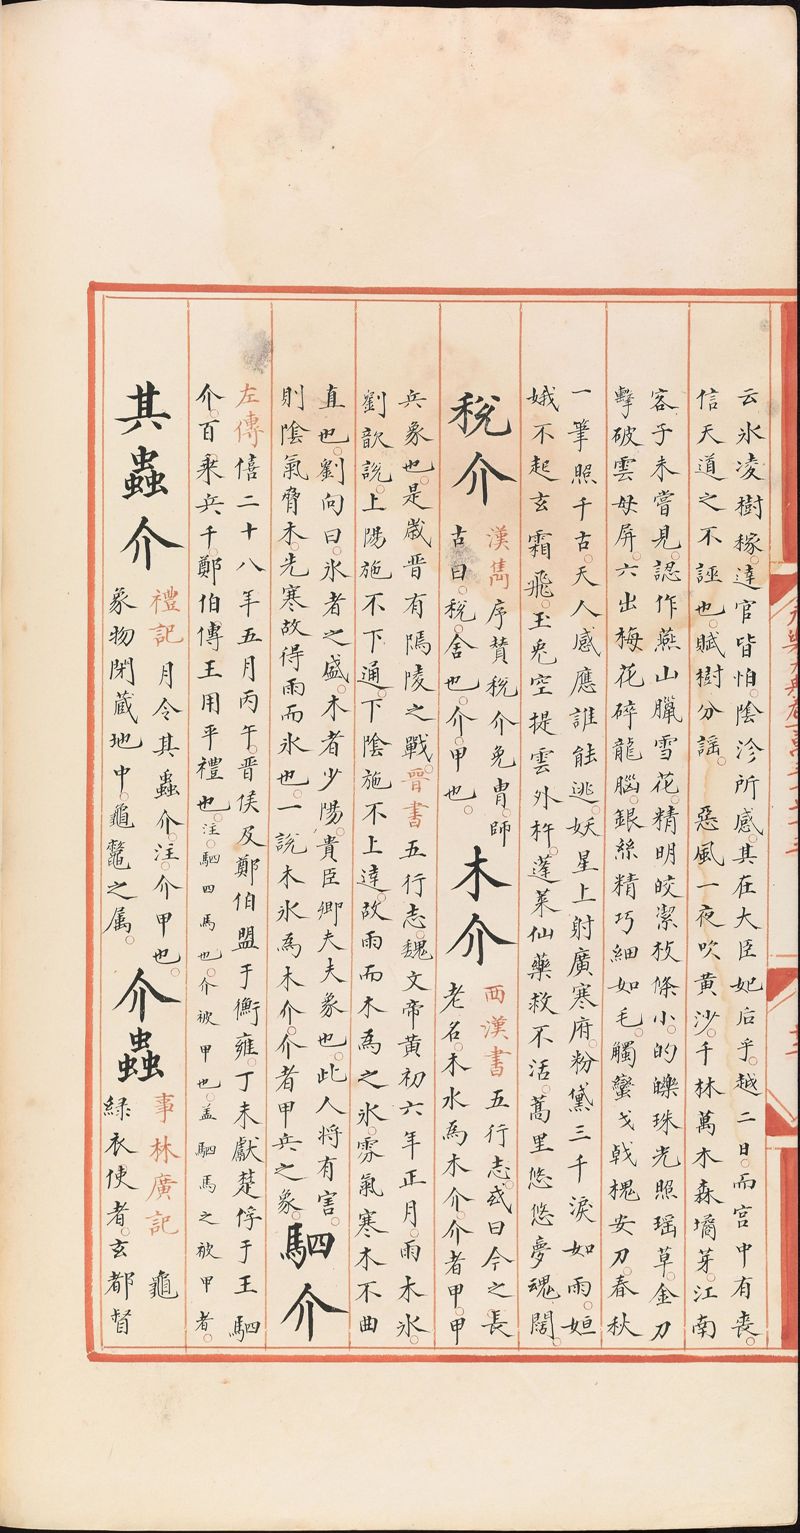 云氷凌樹稼。達官皆怕。陰沴所感。其在大臣妃后乎。越二日。而宮中有喪。
信天道之不誣也。賦樹分謡。 惡風一夜吹黃沙。千林萬木森墧芽。江南
客子未嘗見。認作燕山臘雪花。精明皎潔枚條小。的皪珠光照瑶草。金刀
擊破雲母屏。六出梅花碎龍腦。銀絲精巧細如毛。觸蠻戈戟槐安刀。春秋
一筆照千古。天人感應誰能逃。妖星上射廣寒府。粉黛三千淚如雨。姮
娥不起玄霜飛。玉兎空提雲外杵。蓬萊仙藥救不活。蒿里悠悠夢魂闊。
税介 漢雋序贊税介免胄。師
古曰。税。舍也。介。甲也。
木介 西漢書五行志。或曰今之長
老名。木水爲木介。介者甲。甲
兵象也。是歲晋有隝陵之戰。晉書五行志。魏文帝黃初六年正月。雨木氷。
劉歆説。上陽施不下通。下陰施不上達。故雨而木爲之氷。雰氣寒木不曲
直也。劉向曰。氷者之盛。木者少陽。貴臣卿大夫象也。此人将有害。
則陰氣脅木。先寒故得雨而氷也。一説木氷爲木介。介者甲兵之象。
駟介
左傳僖二十八年五月丙午。晋侯及鄭伯盟于衡雍。丁未獻楚俘于王駟
介。百乘兵千。鄭伯傅王用平禮也。注。駟四馬也。介被甲也。盖駟馬之被甲者。
其蟲介 禮記月令其蟲介。注。介甲也。
象物閉藏地中。龜鼈之属。
介蟲 事林廣記 龜
緑衣使者。玄都督